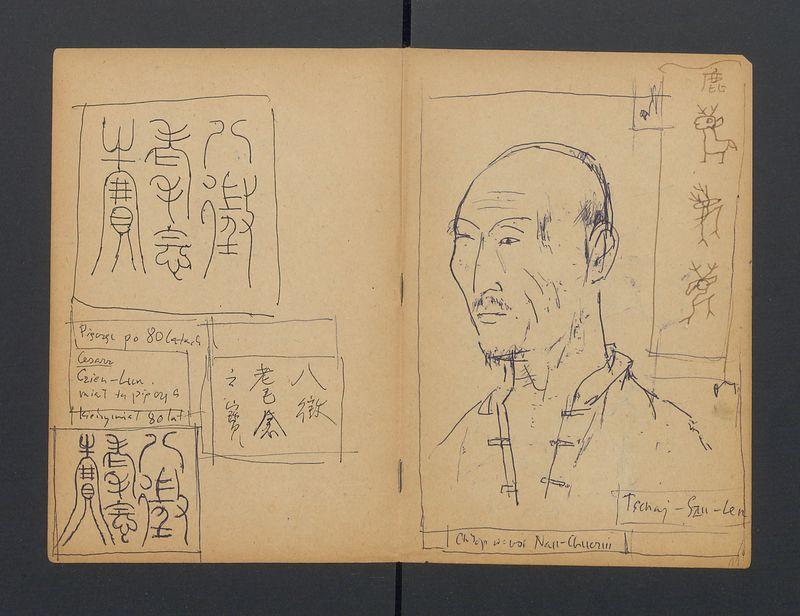 八徵
耄念
之寶
Pieczęć po 80 latach
Cesarz
Czien-Lun.
miał tę pieczęć
kiedy miał 80 lat
八徵
之寶
八徵
耄念
之寶
鹿
Tschaj-Szu-Len
Chłop wsi